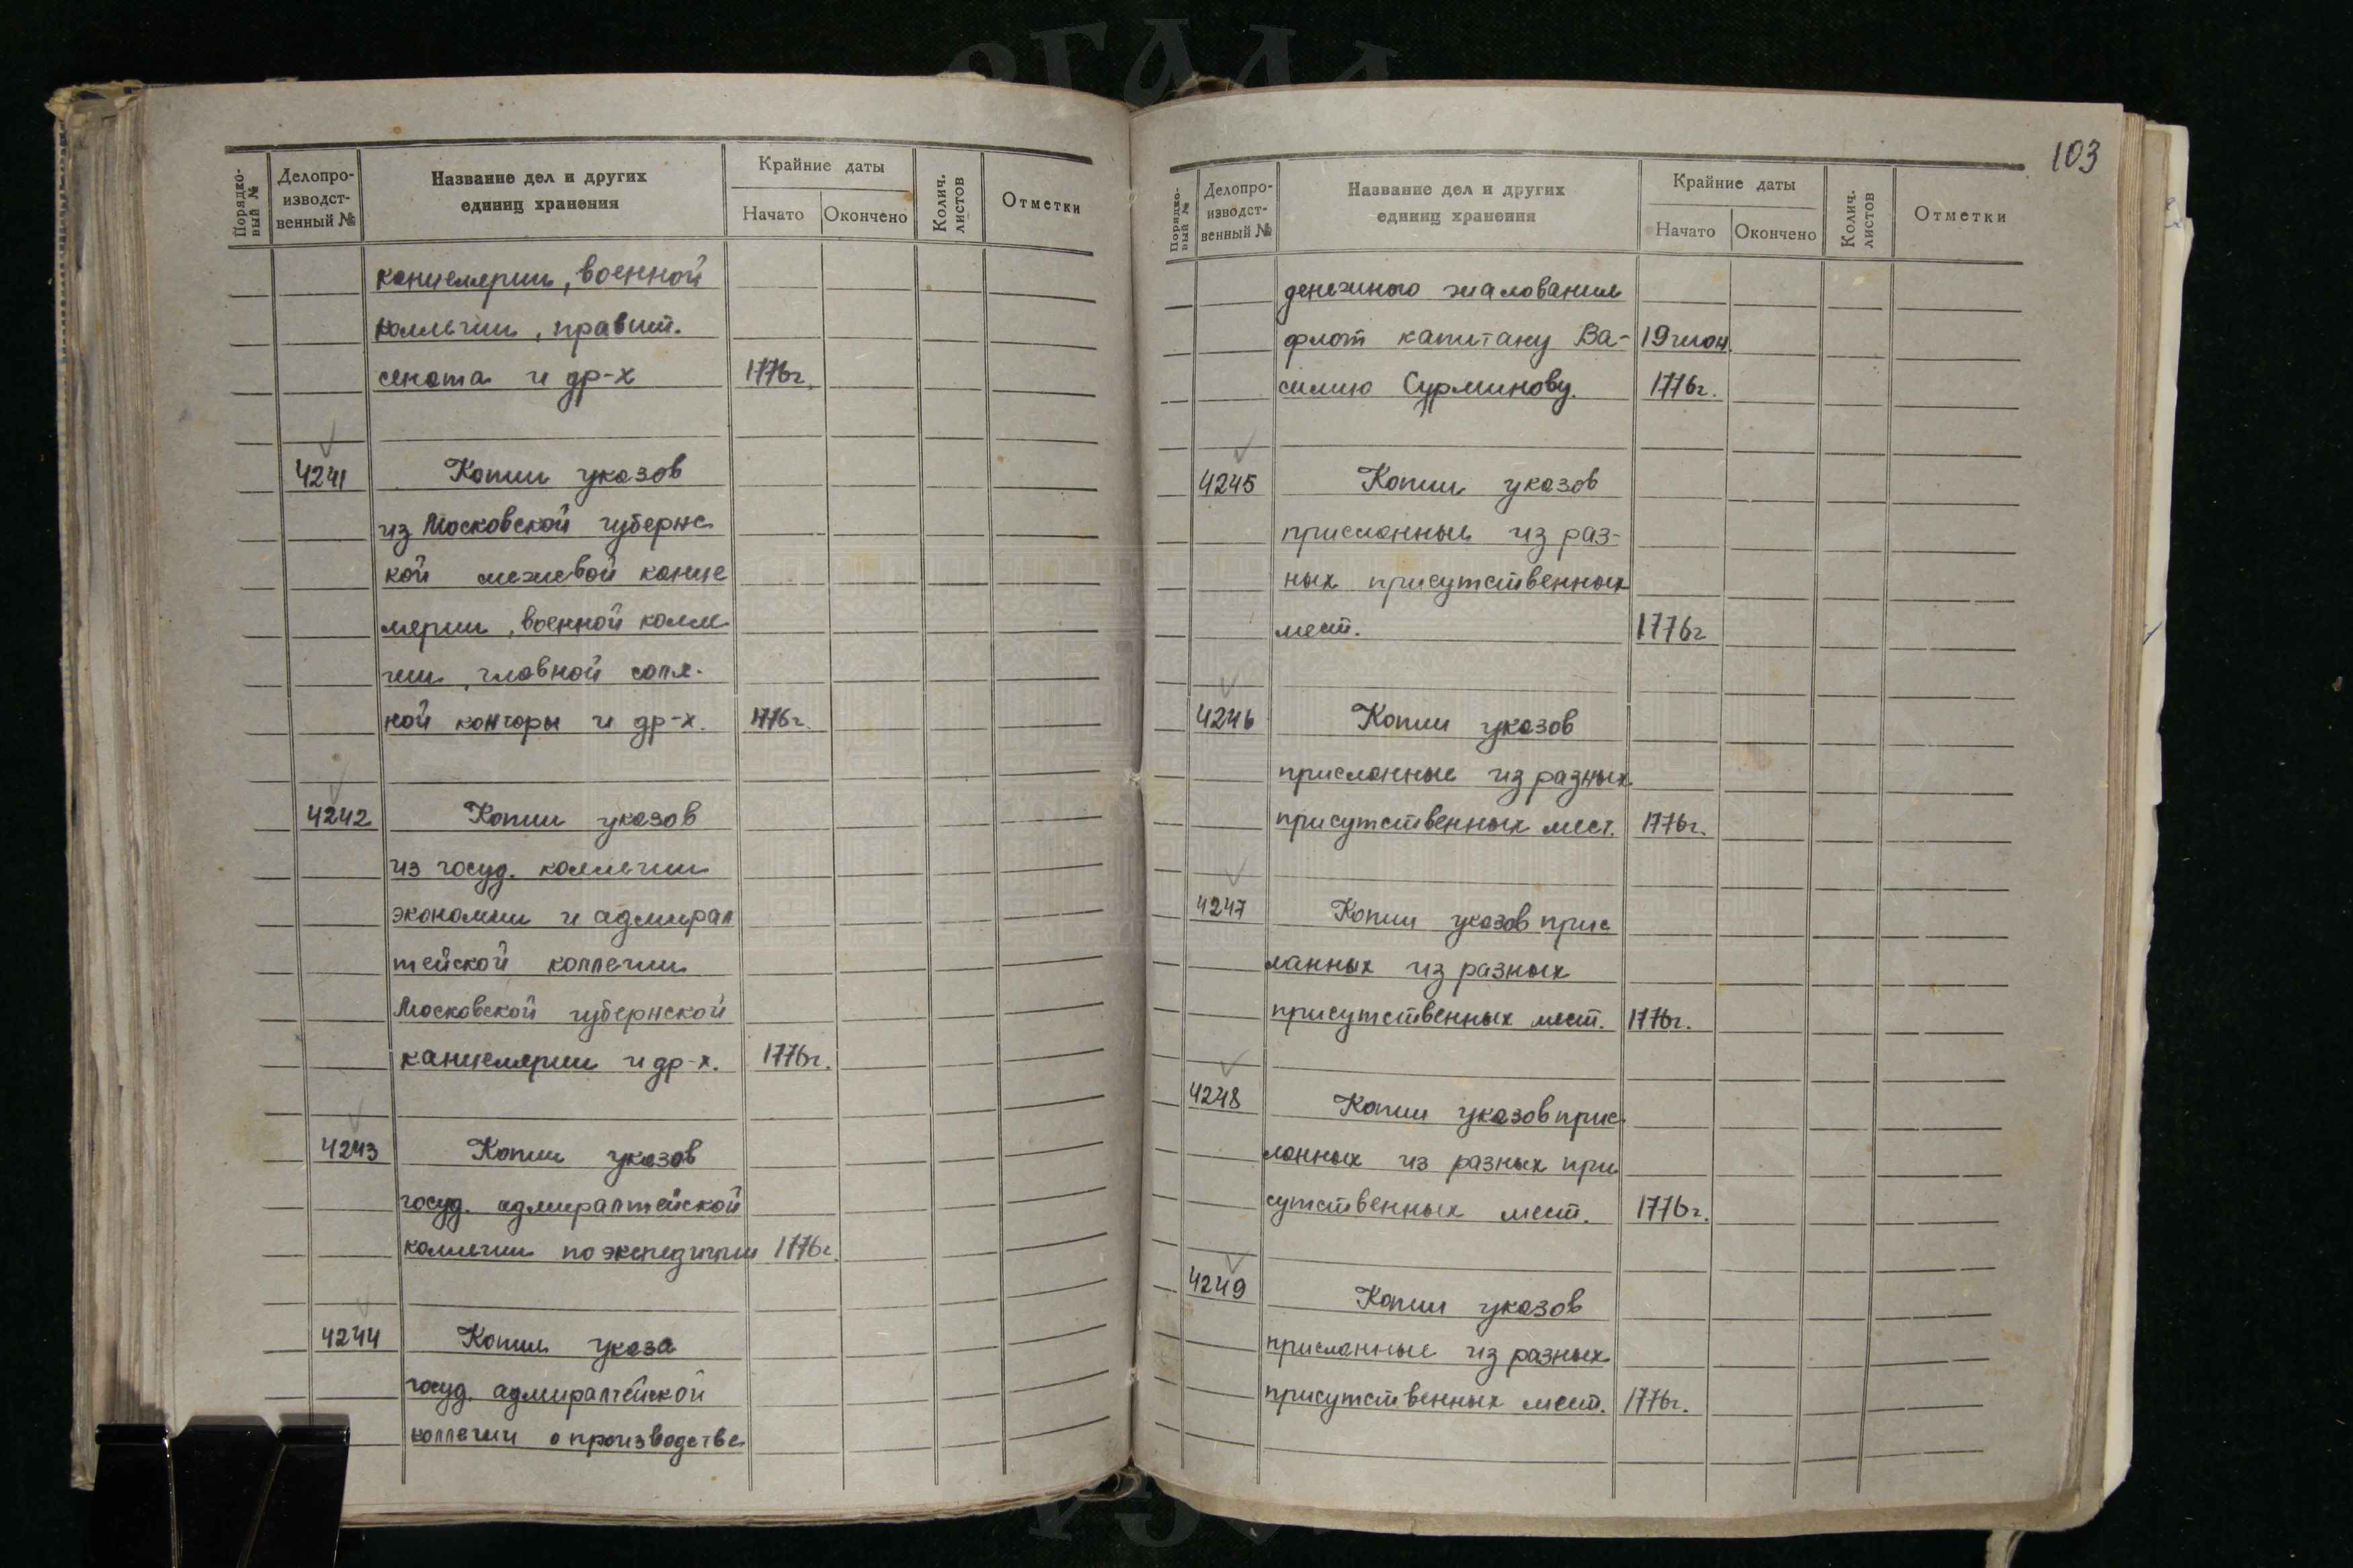 Порядко-
вый №
Делопро-
изводст-
венный №
Название дел и других
единиц хранения
Крайние даты
Начато
Окончено
Колич.
листов
Отметки
канцелярии, военной
коллегии, правит.
сената и др-х 1776г.
4241 Копии указов
из Московской губернс
кой межевой канце
лярии, военной колле
гии, главной солян.
ной конторы и др-х. 1776г.
4242 Копии указов
из госуд. коллегии
экономии и адмирал
тейской коллегии
Московской губернской
канцелярии и др-х. 1776г.
4243 Копии указов
госуд. адмиралтейской
коллегии по экспедиции 1776г.
4244 Копия указа
госуд. адмиралтейской
коллегии о производстве
103
Порядко-
вый №
Делопро-
изводст-
венный №
Название дел и других
единиц хранения
Крайние даты
Начато
Окончено
Колич.
листов
Отметки
денежного жалования
флот капитану Ва- 19 июн.
силию Сурминову. 1776г.
4245 Копии указов
присланные из раз-
ных присутственных
мест. 1776г
4246 Копии указов
присланные из разных
присутственных мест. 1776г.
4247 Копии указов прис
ланных из разных
присутственных мест. 1776г.
4248 Копии указов прис
ланных из разных при
сутственных мест. 1776г.
4249 Копии указов
присланные из разных
присутственных мест. 1776г.